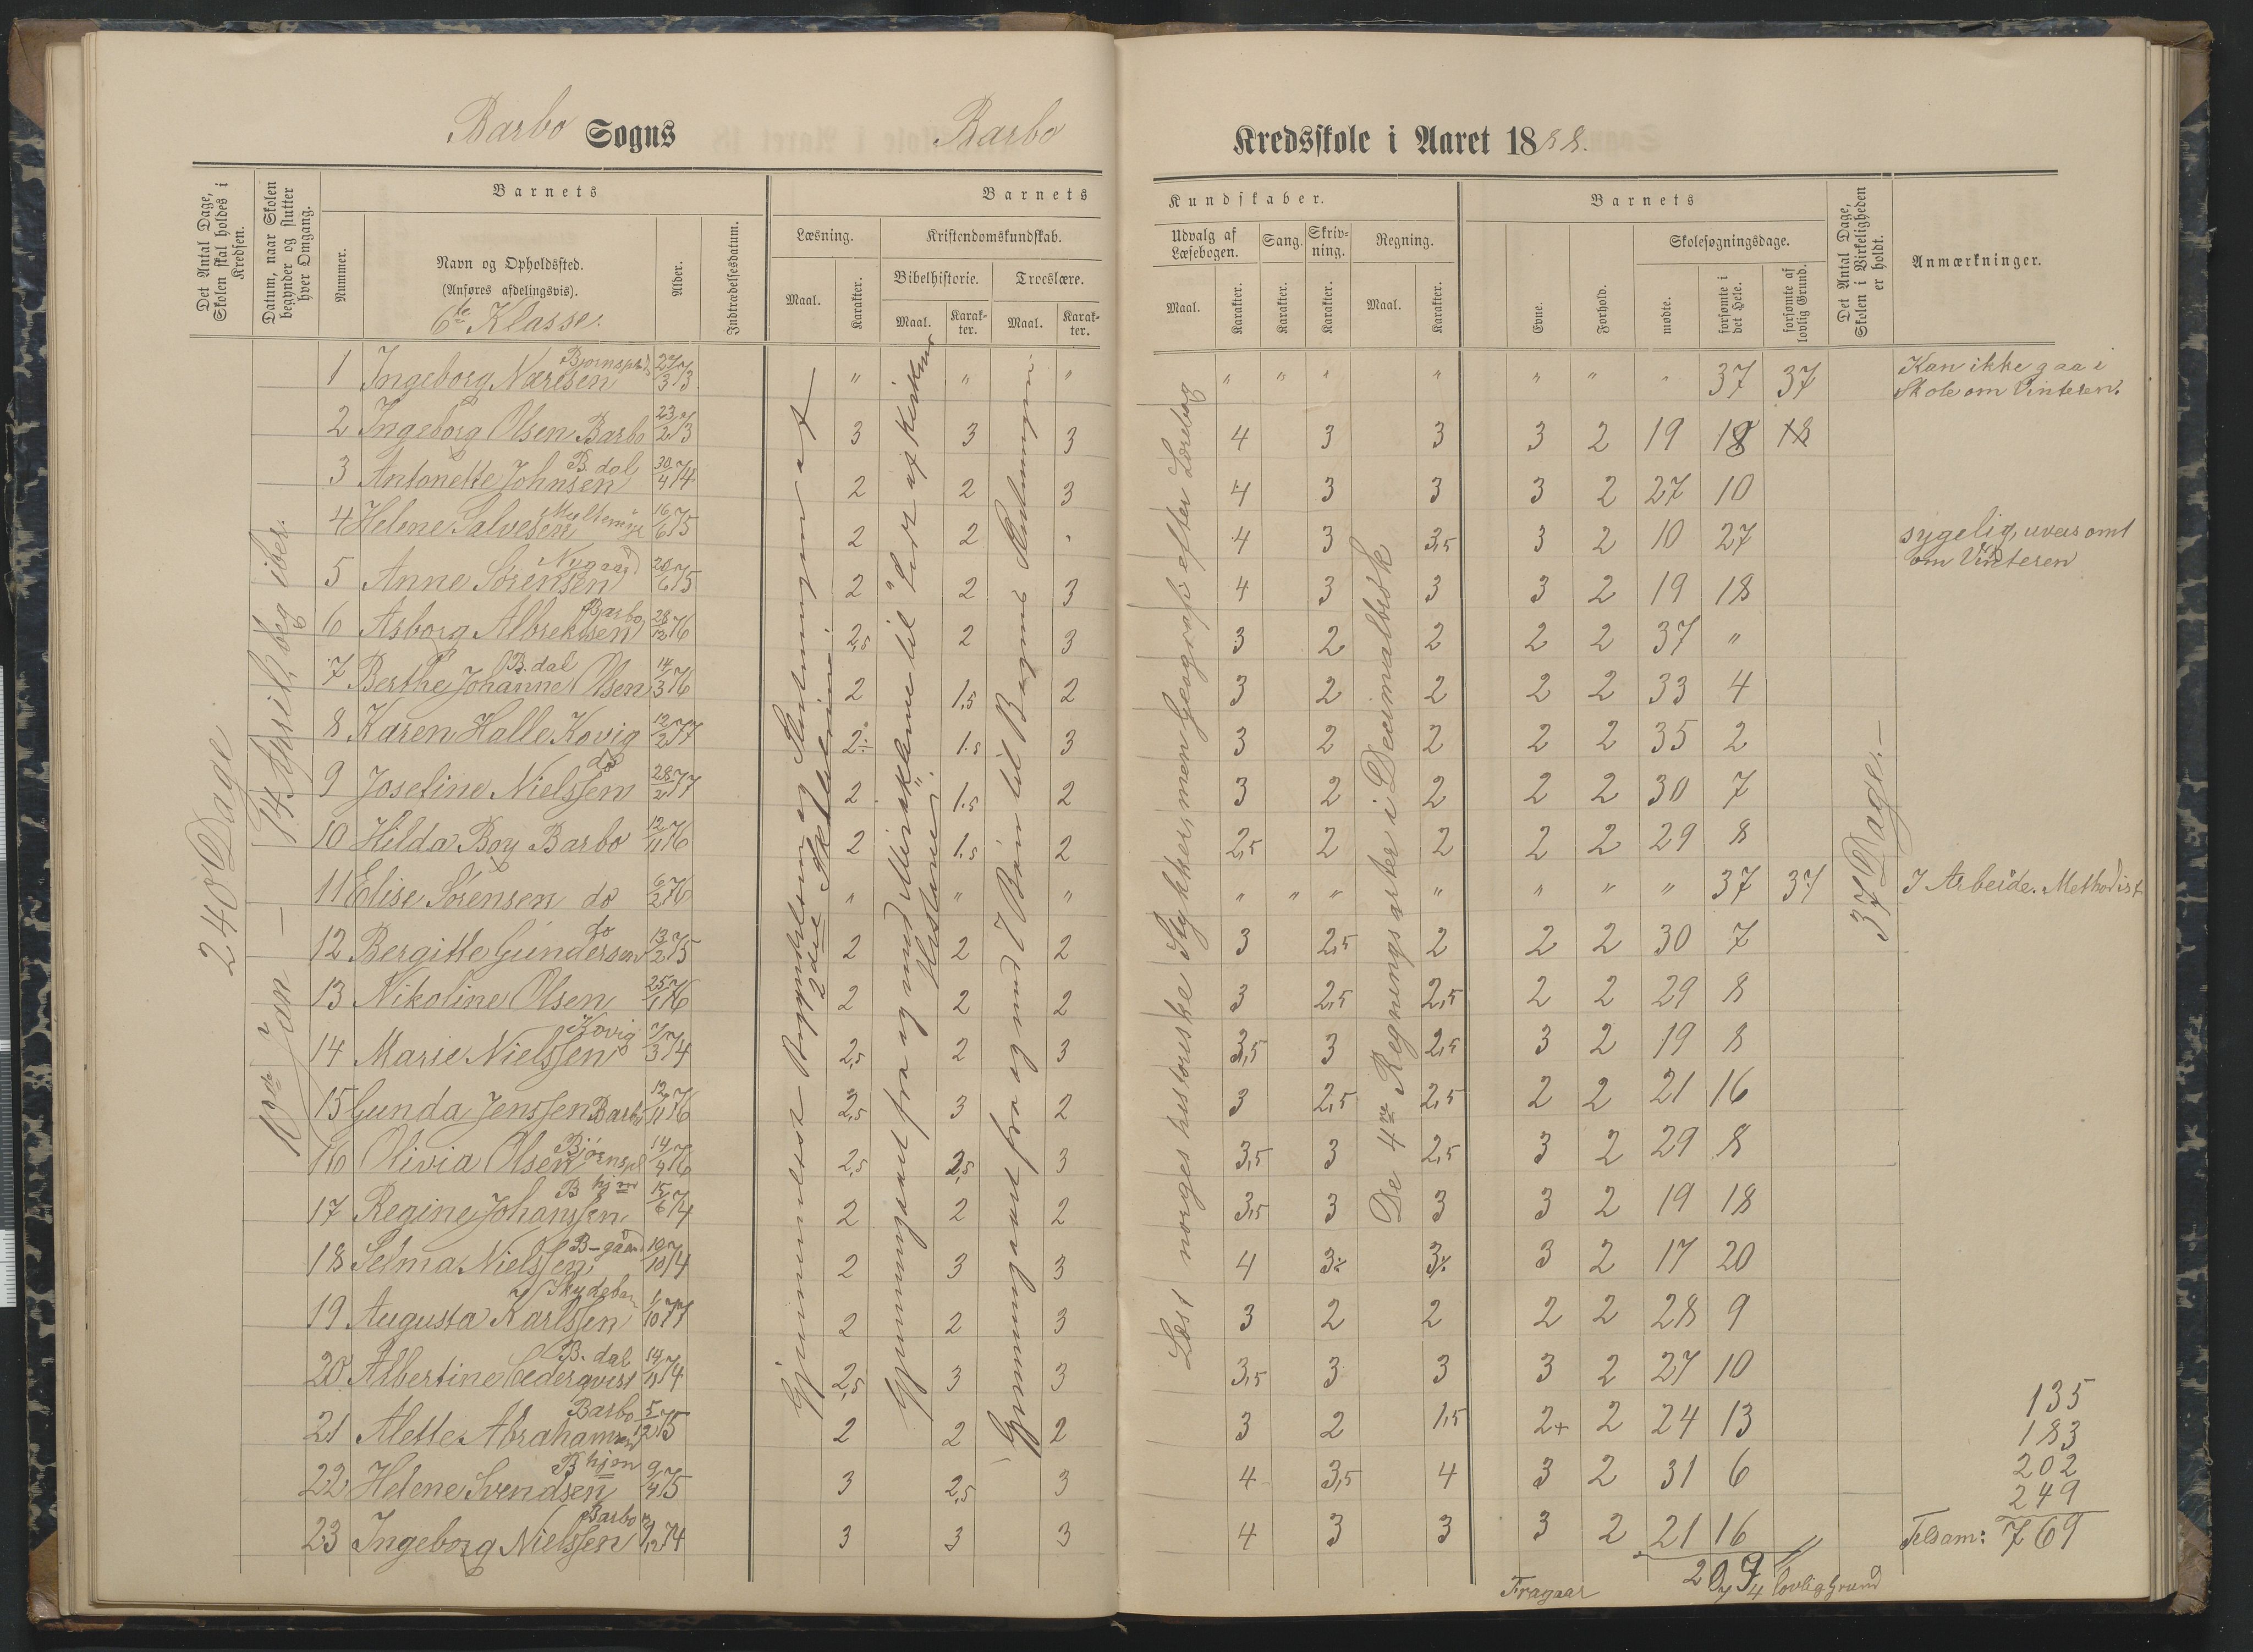 Barbo Sogns Barbo Kredsskole i Aaret 1888.
Det Antal Dage, Skolen skal holdes i Kredsen.
Datum, naar Skolen begynder og slutter hver Omgang.
Barnets
Nummer.
Navn og Opholdssted.
(Anføres afdelingsvis).
6te Klasse.
Alder.
Indtrædelsesdatum.
Barnets Kundskaber.
Læsning.
Maal.
Karakter.
Kristendomskundskab.
Bibelhistorie.
Maal.
Karakter.
Troeslære.
Maal.
Karakter.
Udvalg af Læsebogen.
Maal.
Karakter.
Sang.
Karakter.
Skrivning.
Karakter.
Regning.
Maal.
Karakter.
Barnets
Evne.
Forhold.
Skolesøgningsdage.
mødte.
forsømte i det Hele.
forsømte af lovlig Grund.
Det Antal Dage, Skolen i Virkeligheden er holdt.
Anmærkninger.
240 Dage
10de Jan — 14 April
37 Dage.—
Gjennemgaaet fra og med Miraklerne til
Gjennemgaaet fra og med 7 Bøn til
Læst norges historiske Stykker, men Geografi efter Læsebog
De 4re Regningsarter i Decimalbrøk
1 Ingeborg Næresen 27/3 73 " " " " " " " " " " 37 37 Kan ikke gaa i Skole om Vinteren.
2 Ingeborg Olsen Barbo 23/2 73 3 3 3 4 3 3 3 2 19 18
3 Antonette Johnsen B. dal 30/4 74 2 2 3 4 3 3 3 2 27 10
4 Helene Salvesen 16/6 75 2 2 " 4 3 3,5 3 2 10 27 sygelig, om Vinteren
5 Anne Sørensen Nygaard 20/6 75 2 2 3 4 3 3 3 2 19 18
6 Asborg Albrektsen Barbo 28/12 76 2,5 2 3 3 2 2 2 2 37 "
7 Berthe Johanne Olsen B. dal 14/3 76 2 1,5 2 3 2 2 2 2 33 4
8 Karen Halle Kovig 12/2 77 2÷ 1.5 3 3 2 2 2 2 35 2
9 Josefine Nielssen do 28/2 77 2 1.5 2 3 2 2 2 2 30 7
10 Hilda Boy Barbo 12/11 76 2 1.5 2 2,5 2 2 2 2 29 8
11 Elise Sørensen do 6/2 76 " " " " " " " " " " 37 37 I Arbeide. Methodist
12 Bergitte Gundersen do 13/2 75 2 2 2 3 2,5 2 2 2 30 7
13 Nikoline Olsen 25/1 76 2 2 2 3 2,5 2,5 2 2 29 8
14 Marie Nielssen Kovig 7/3 74 2,5 2 3 3,5 3 2,5 3 2 19 8
15 Gunda Jenssen Barbo 12/11 76 2,5 3 2 3 2,5 2,5 2 2 21 16
16 Olivia Olsen Bjørnspl 14/4 76 2,5 2,5 3 3,5 3 2,5 3 2 29 8
17 Regine Johanssen 15/6 74 2 2 2 3,5 3 3 3 2 19 18
18 Selma Nielssen B-gaard 10/10 74 2 3 3 4 3÷ 3÷ 3 2 17 20
19 Augusta Karlssen 1/10 77 2 2 3 3 2 2 2 2 28 9
20 Albertine Cederqvist B. dal 14/11 74 2,5 3 3 3,5 3 3 3 2 27 10
21 Alette Abrahamsen Barbo 5/12 75 2 2 2 3 2 1,5 2+ 2 24 13
22 Helene Svendsen 9/4 75 3 2,5 3 4 3,5 4 3 2 31 6
23 Ingeborg Nielssen Barbo 74 3 3 3 4 3 3 3 2 21 16
135
183
202
249
Tilsam: 769
Fragaar 74 lovlig Grund